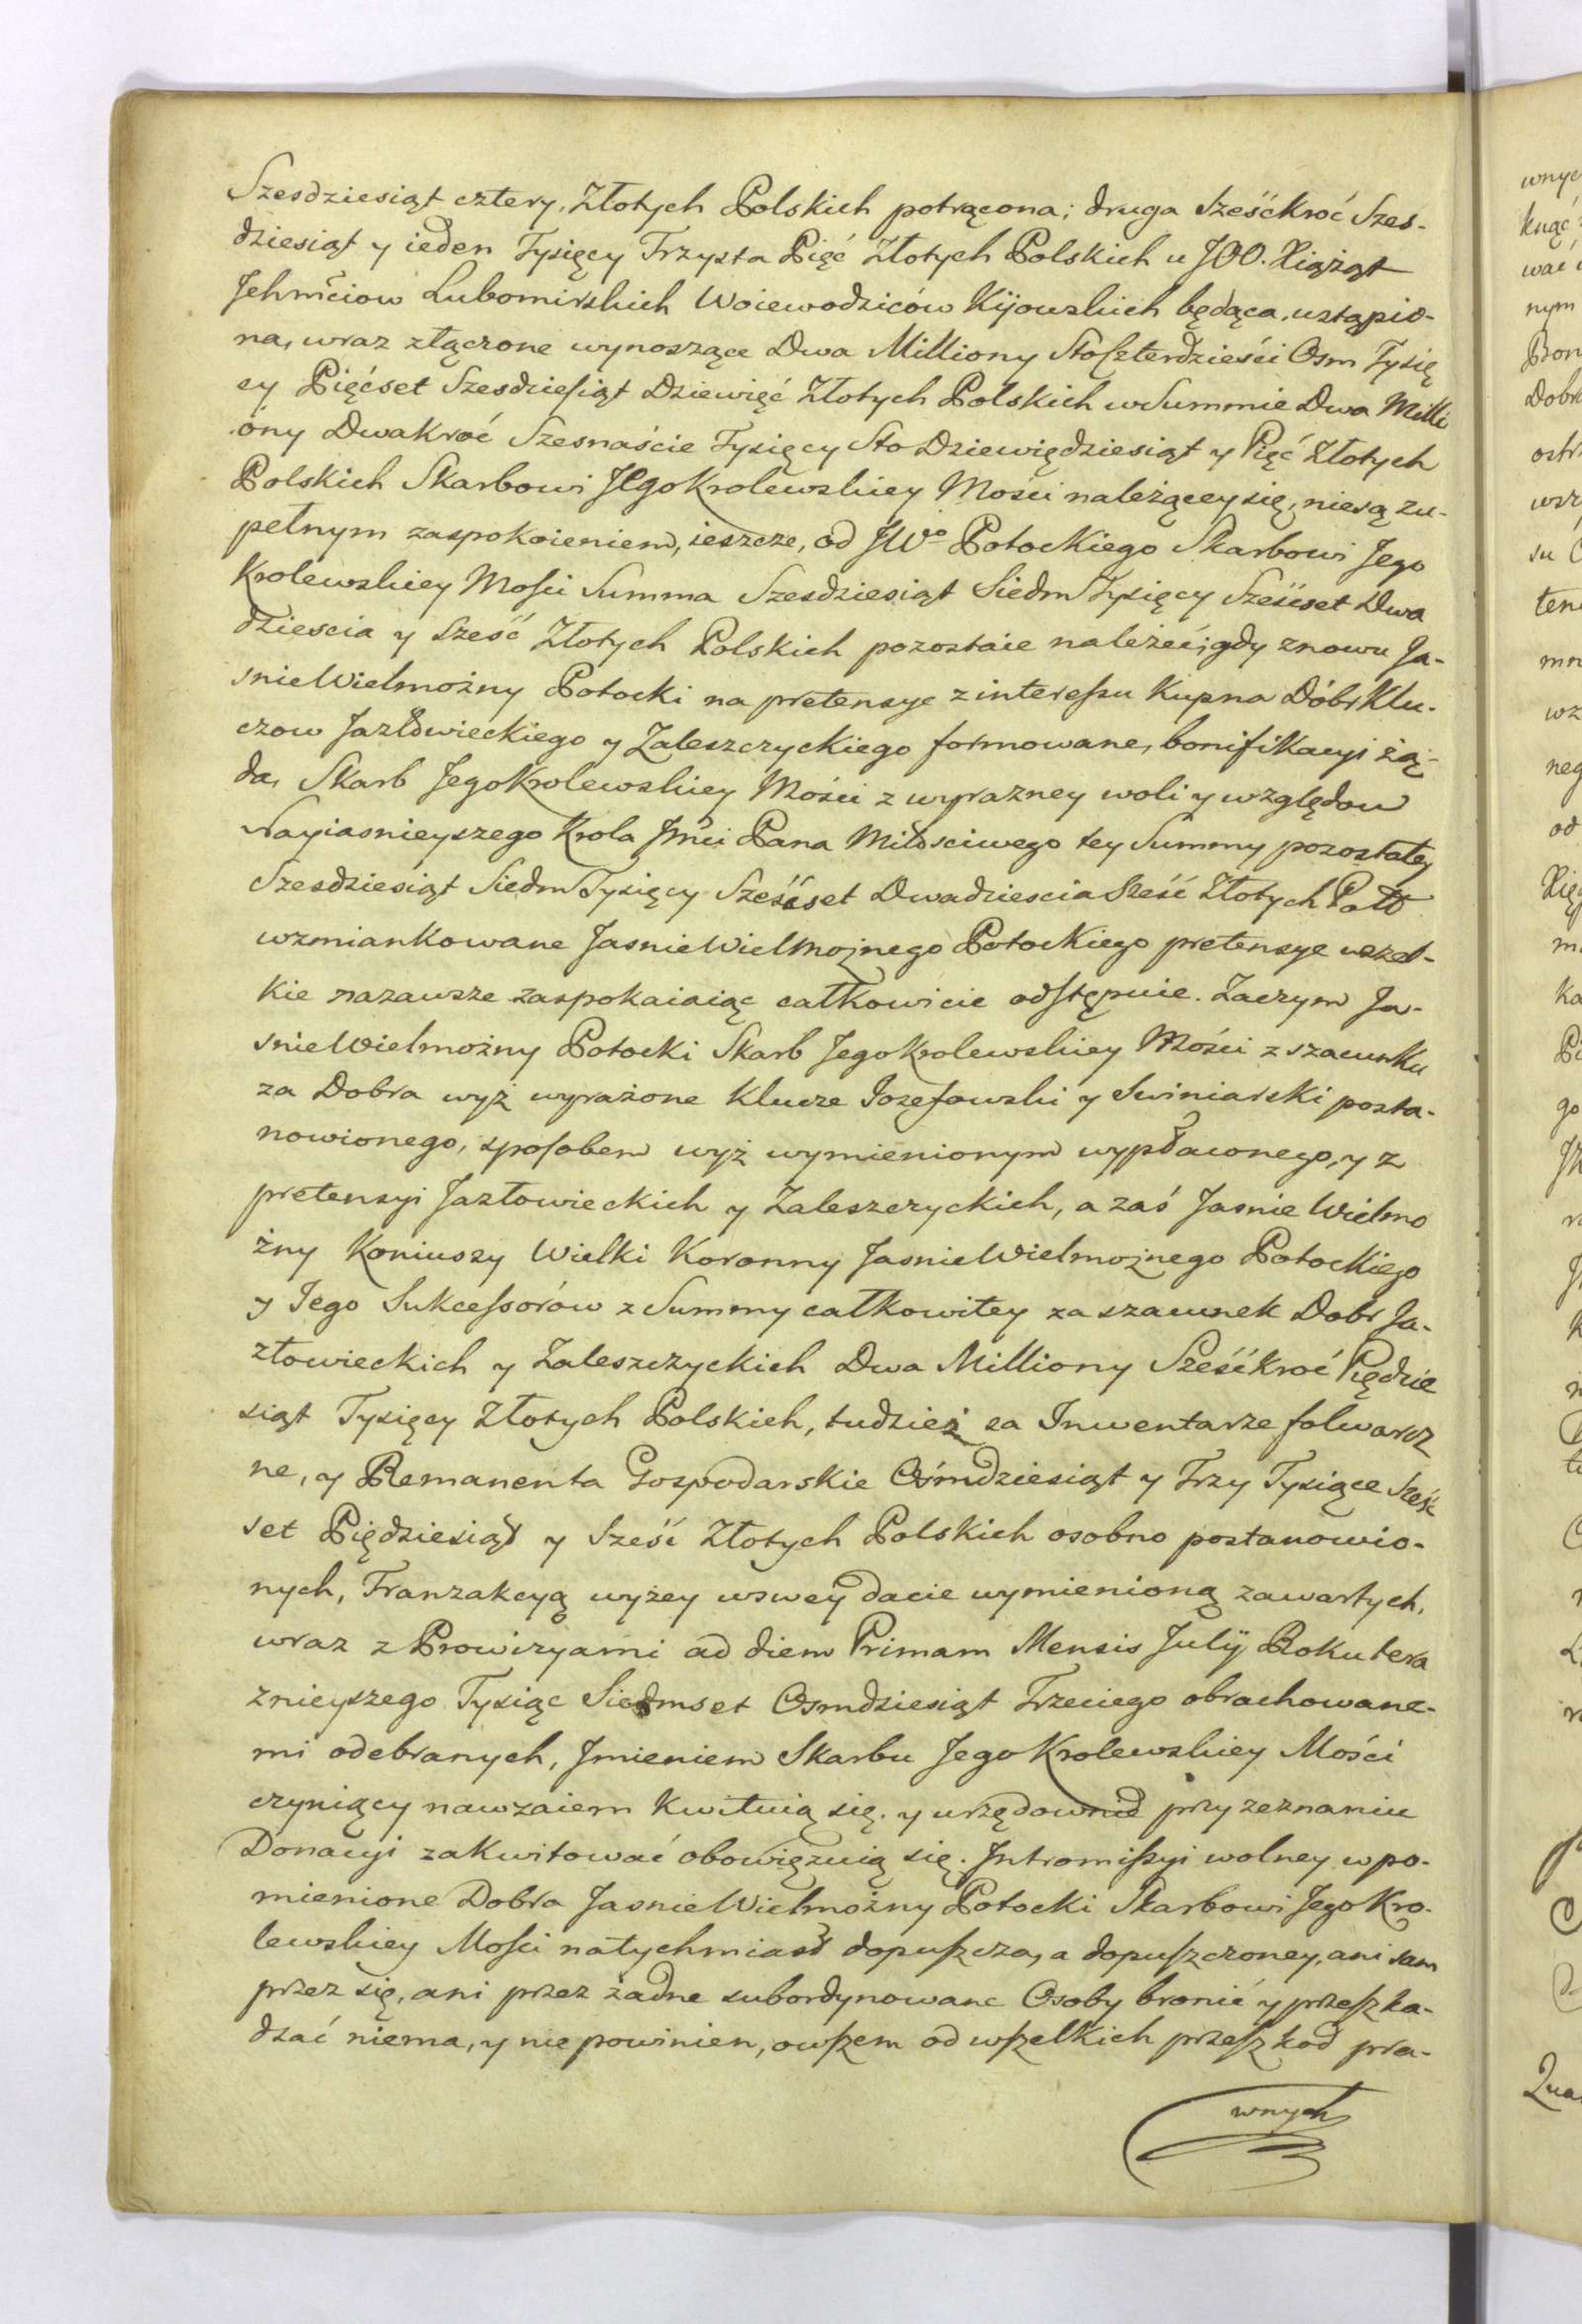 Szesdziesiąt cztery, Złotych Polskich potrącona; druga sześćkroć Szes-
dziesiąt y ieden Tysięcy Trzysta Pięć Złotych Polskich u JOO. Xiążąt
Jchmćiow Lubomirskich Woiewodziców Kijowskich będąca, ustąpio-
na, wraz złączone wynoszące Dwa Milliony Sto Czterdzieści Osm Tysię
cy Pięćset Szesdziesiąt Dziewięć Złotych Polskich w Summie Dwa Milli
ony Dwakroć Szesnaście Tysięcy Sto Dziewiędziesiąt y Pięć Złotych
Polskich Skarbowi JEgo Krolewskiey Mości należącey się, niesą zu-
pełnym zaspokoieniem, ieszcze, od JWo Potockiego Skarbowi Jego
Krolewskiey Mości Summa Szesdziesiąt Siedm Tysięcy Sześćset Dwa
dziescia y sześć Złotych Polskich pozostaie należeć; gdy znowu Ja-
snie Wielmożny Potocki na pretensye z interessu Kupna Dóbr Klu-
czow Jazłowieckiego y Zaleszczyckiego formowane, bonifikacyi żą-
da, Skarb Jego Krolewskiey Mości z wyrazney woli y względow
Nayiasnieyszego Krola Jmći Pana Miłosciwego tey Summy pozostałey
Szesdziesiąt Siedm Tysięcy Sześćset Dwadziescia Sześć Złotych Polł
wzmiankowane Jasnie Wielmożnego Potockiego pretensye wszel-
kie nazawsze zaspokaiaiąc całkowicie odstępuie. Zaczym Ja-
snie Wielmożny Potocki Skarb Jego Krolewskiey Mości z szacunku
za Dobra wyż wyrażone Klucze Jozefowski y Swiniarski posta-
nowionego, sposobem wyż wymienionym wypłaconego, y z
pretensyi Jazłowieckich y Zaleszczyckich, a zaś Jasnie Wielmo
żny Koniuszy Wielki Koronny Jasnie Wielmożnego Potockiego
y Jego Sukcessorów z Summy całkowitey za szacunek Dobr Ja-
złowieckich y Zaleszczyckich Dwa Milliony Sześćkroć Piędzie
siąt Tysięcy Złotych Polskich, tudzież za Inwentarze folwarcz
ne, y Remanenta Gospodarskie Ośmdziesiąt y Trzy Tysiące Sześć
set Piędziesiąt y Sześć Złotych Polskich osobno postanowio-
nych, Tranzakcyą wyżey w swey dacie wymienioną zawartych,
wraz z Prowizyami ad diem Primam Mensis Julij Roku tera
znieyszego Tysiąc Siedmset Osmdziesiąt Trzeciego obrachowane-
mi odebranych, Jmieniem Skarbu Jego Krolewskiey Mości
czyniący nawzaiem kwituią się. y urzędownie przy zeznaniu
Donacyi zakwitować obowięzuią się. Jntromissyi wolney w po-
mienione Dobra Jasnie Wielmożny Potocki Skarbowi Jego Kro-
lewskiey Mości natychmiast dopuszcza, a dopuszczoney, ani sam
przez się, ani przez żadne subordynowane Osoby bronić y przeszka-
dzać niema, y nie powinien, owszem od wszelkich przeszkod pra-
wnych